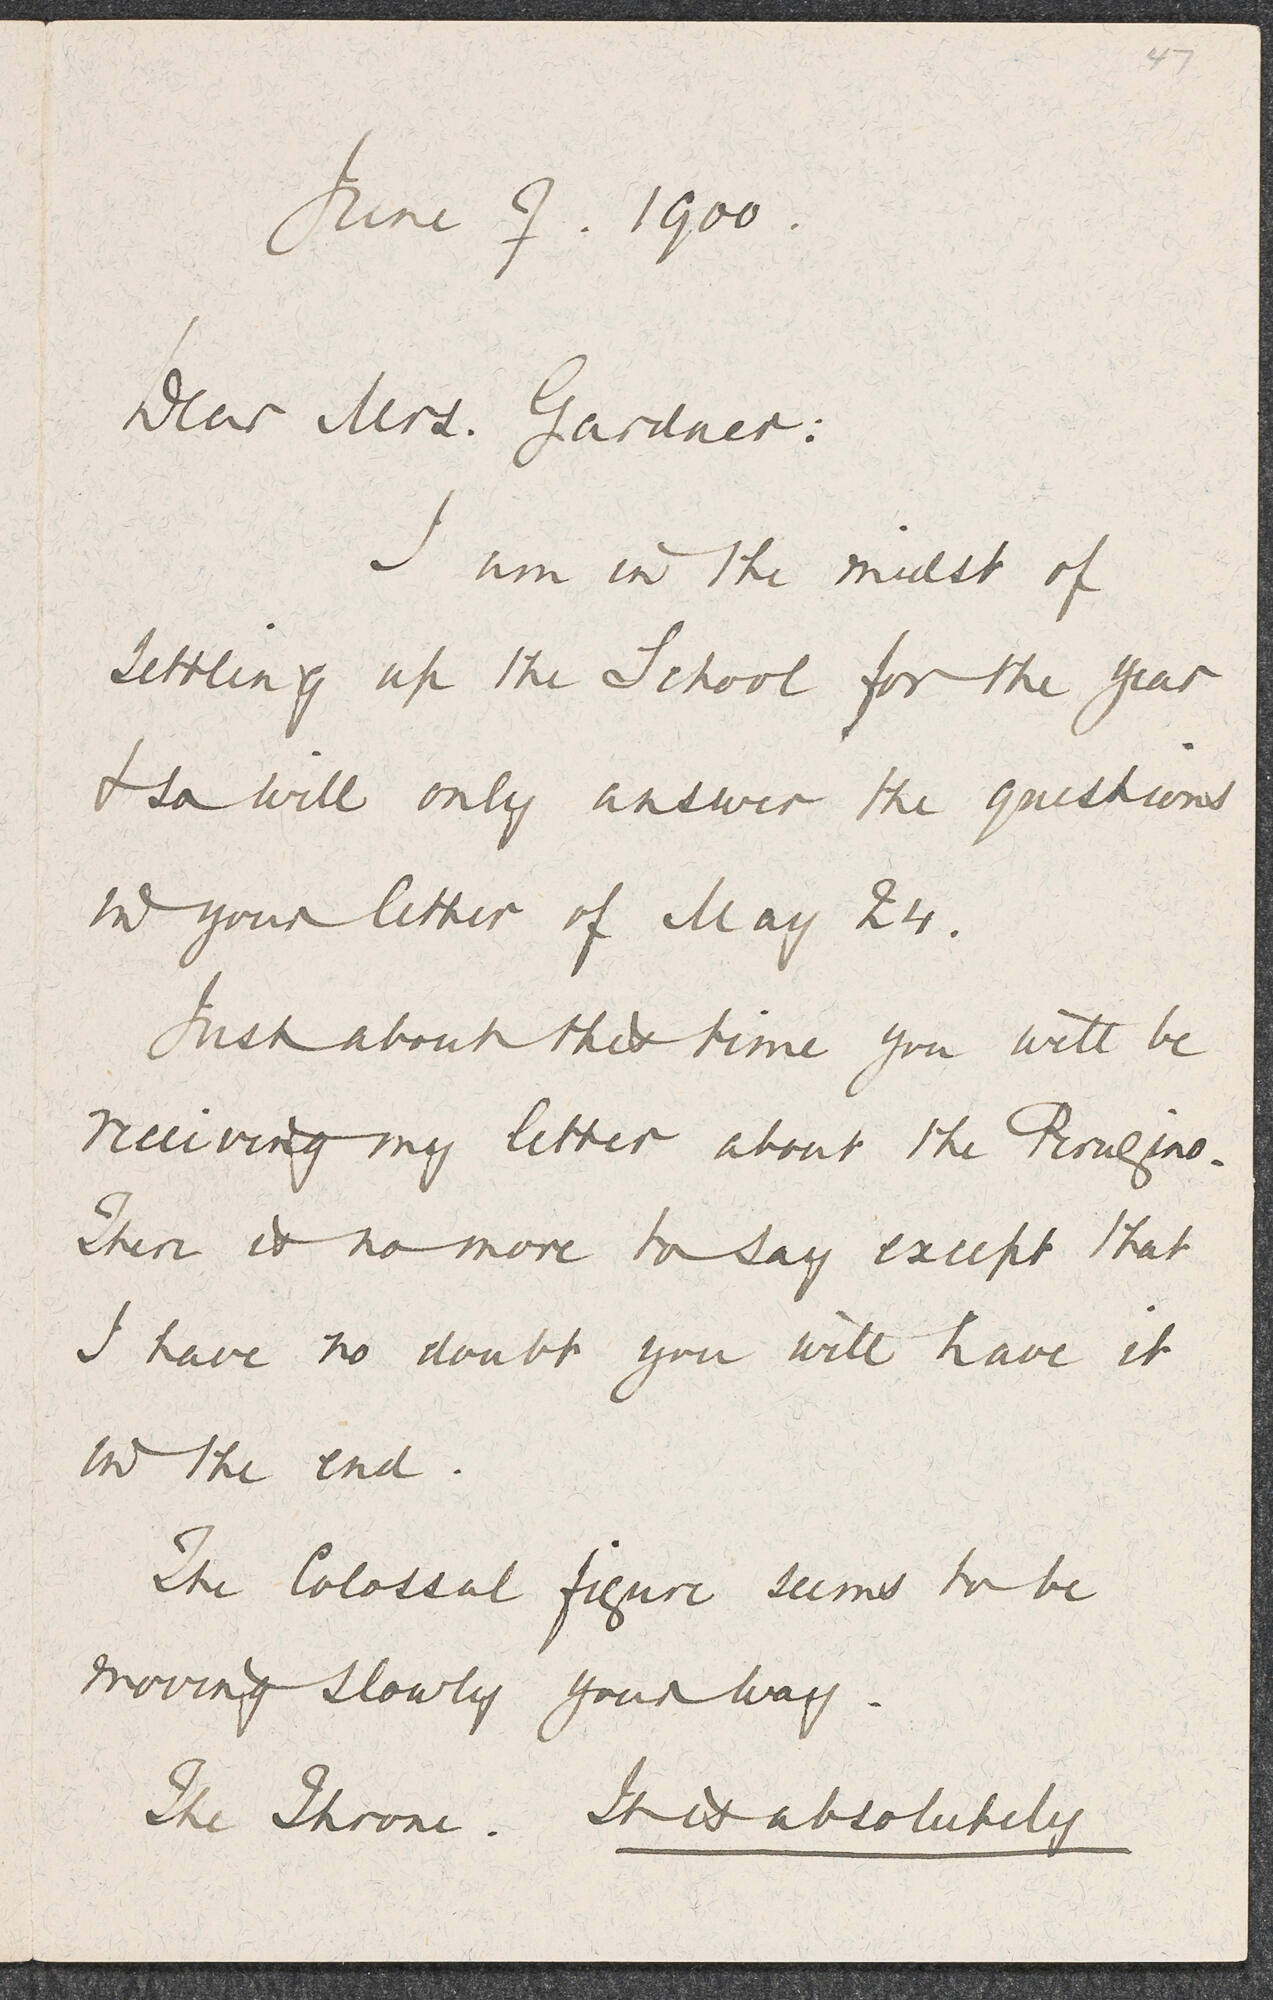 47
June 7. 1900.
Dear Mrs. Gardner:
I am in the midst of
settling up the School for the year
& so will only answer the questions
in your letter of May 24.
Just about this time you will be
receiving my letter about the Perugino.
There is no more to say except that
I have no doubt you will have it
in the end.
The Colossal figure seems to be
moving slowly your way.
The Throne. It is absolutely